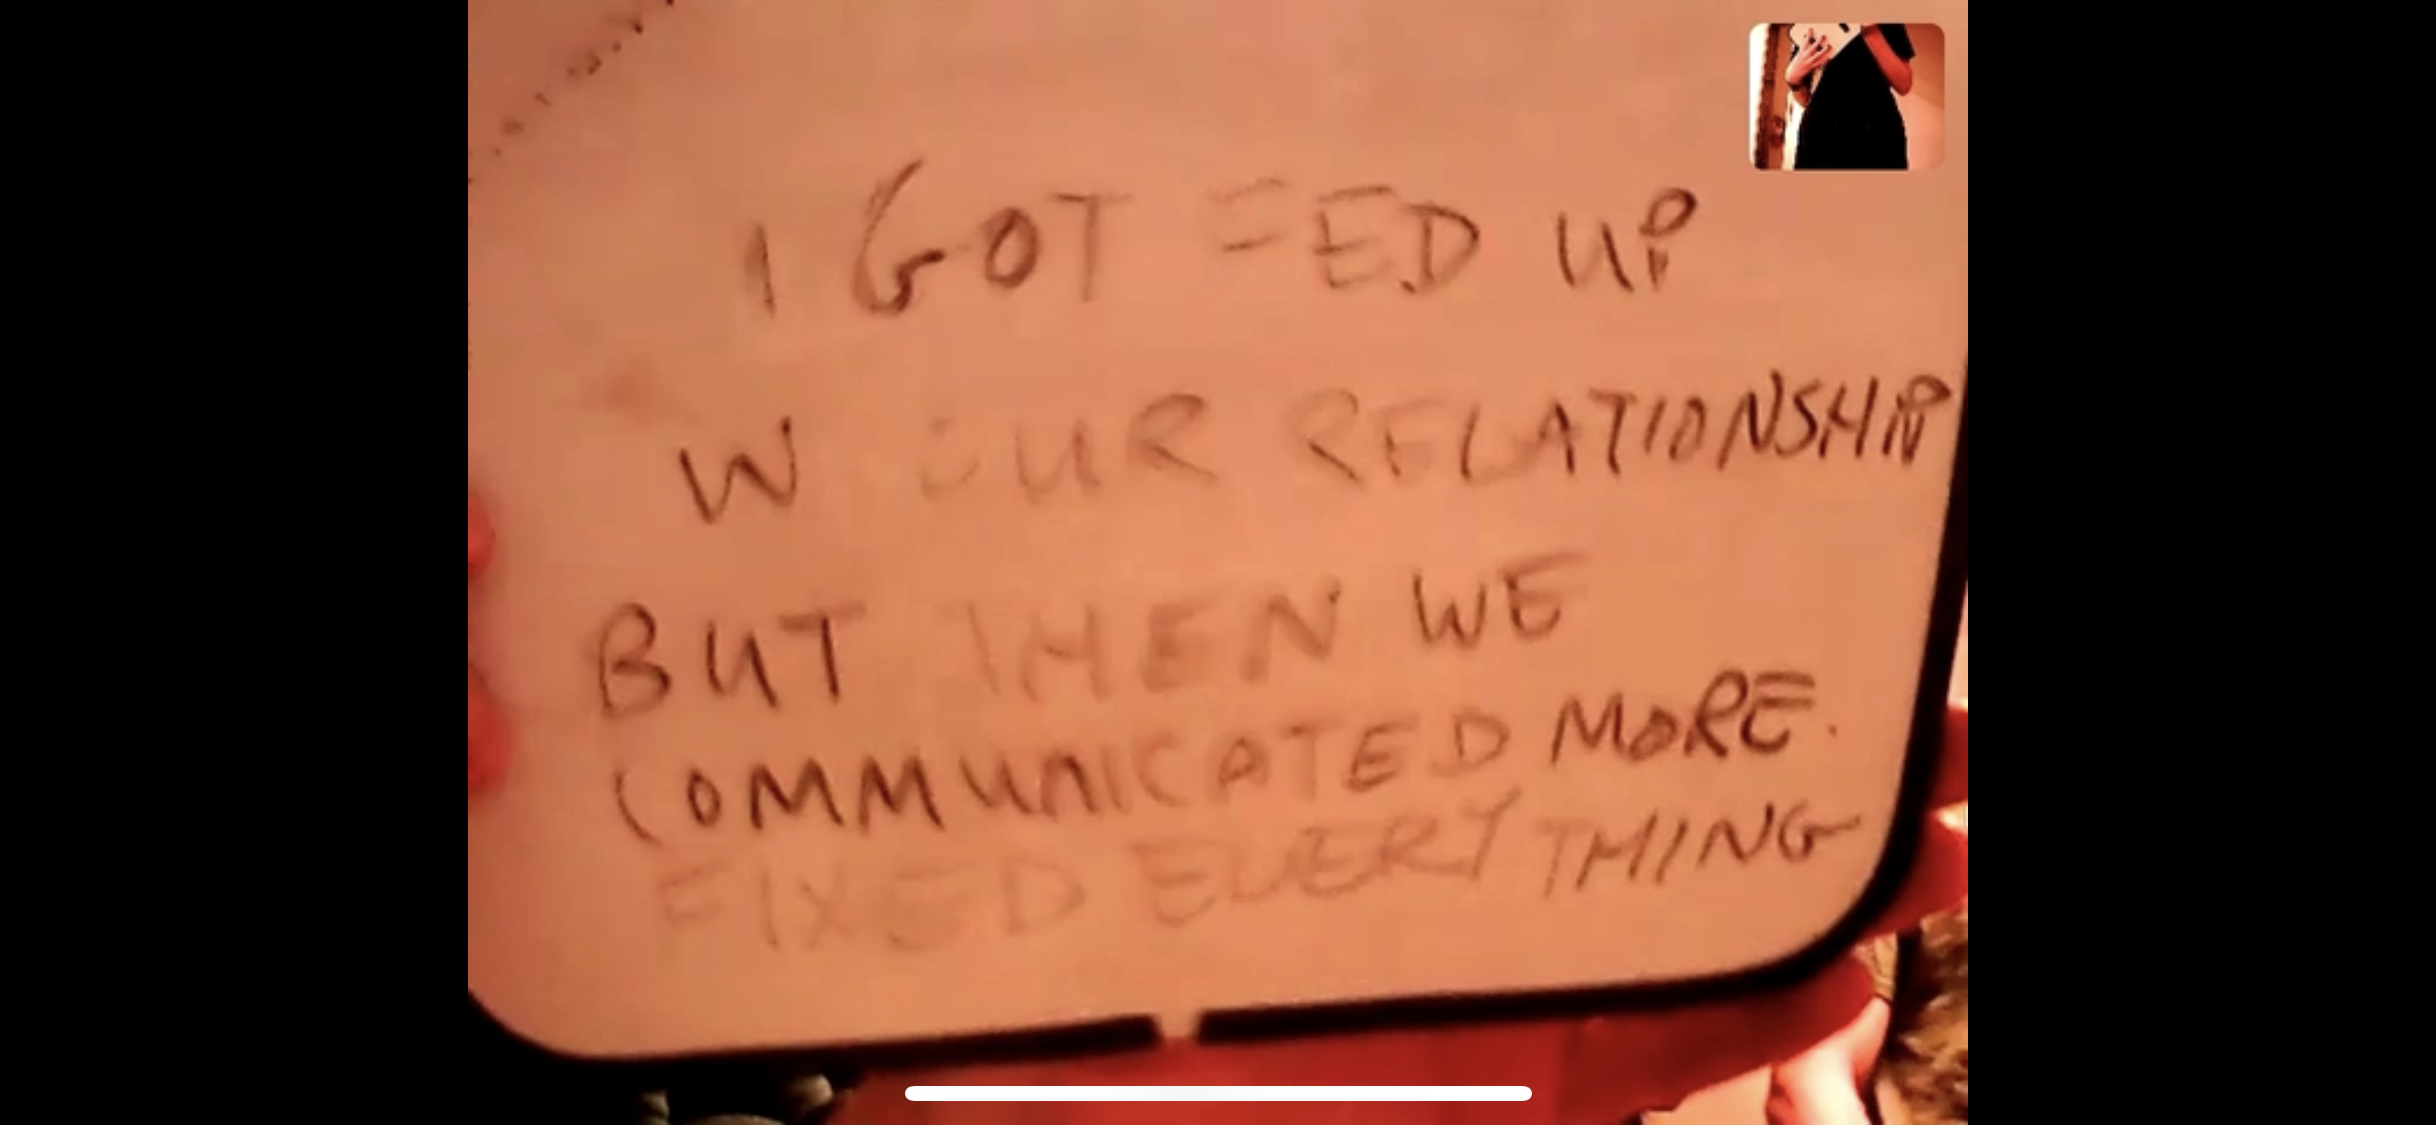 I GOT FED UP
W OUR RELATIONSHIP
BUT THEN WE
COMMUNICATED MORE.
FIXED EVERYTHING